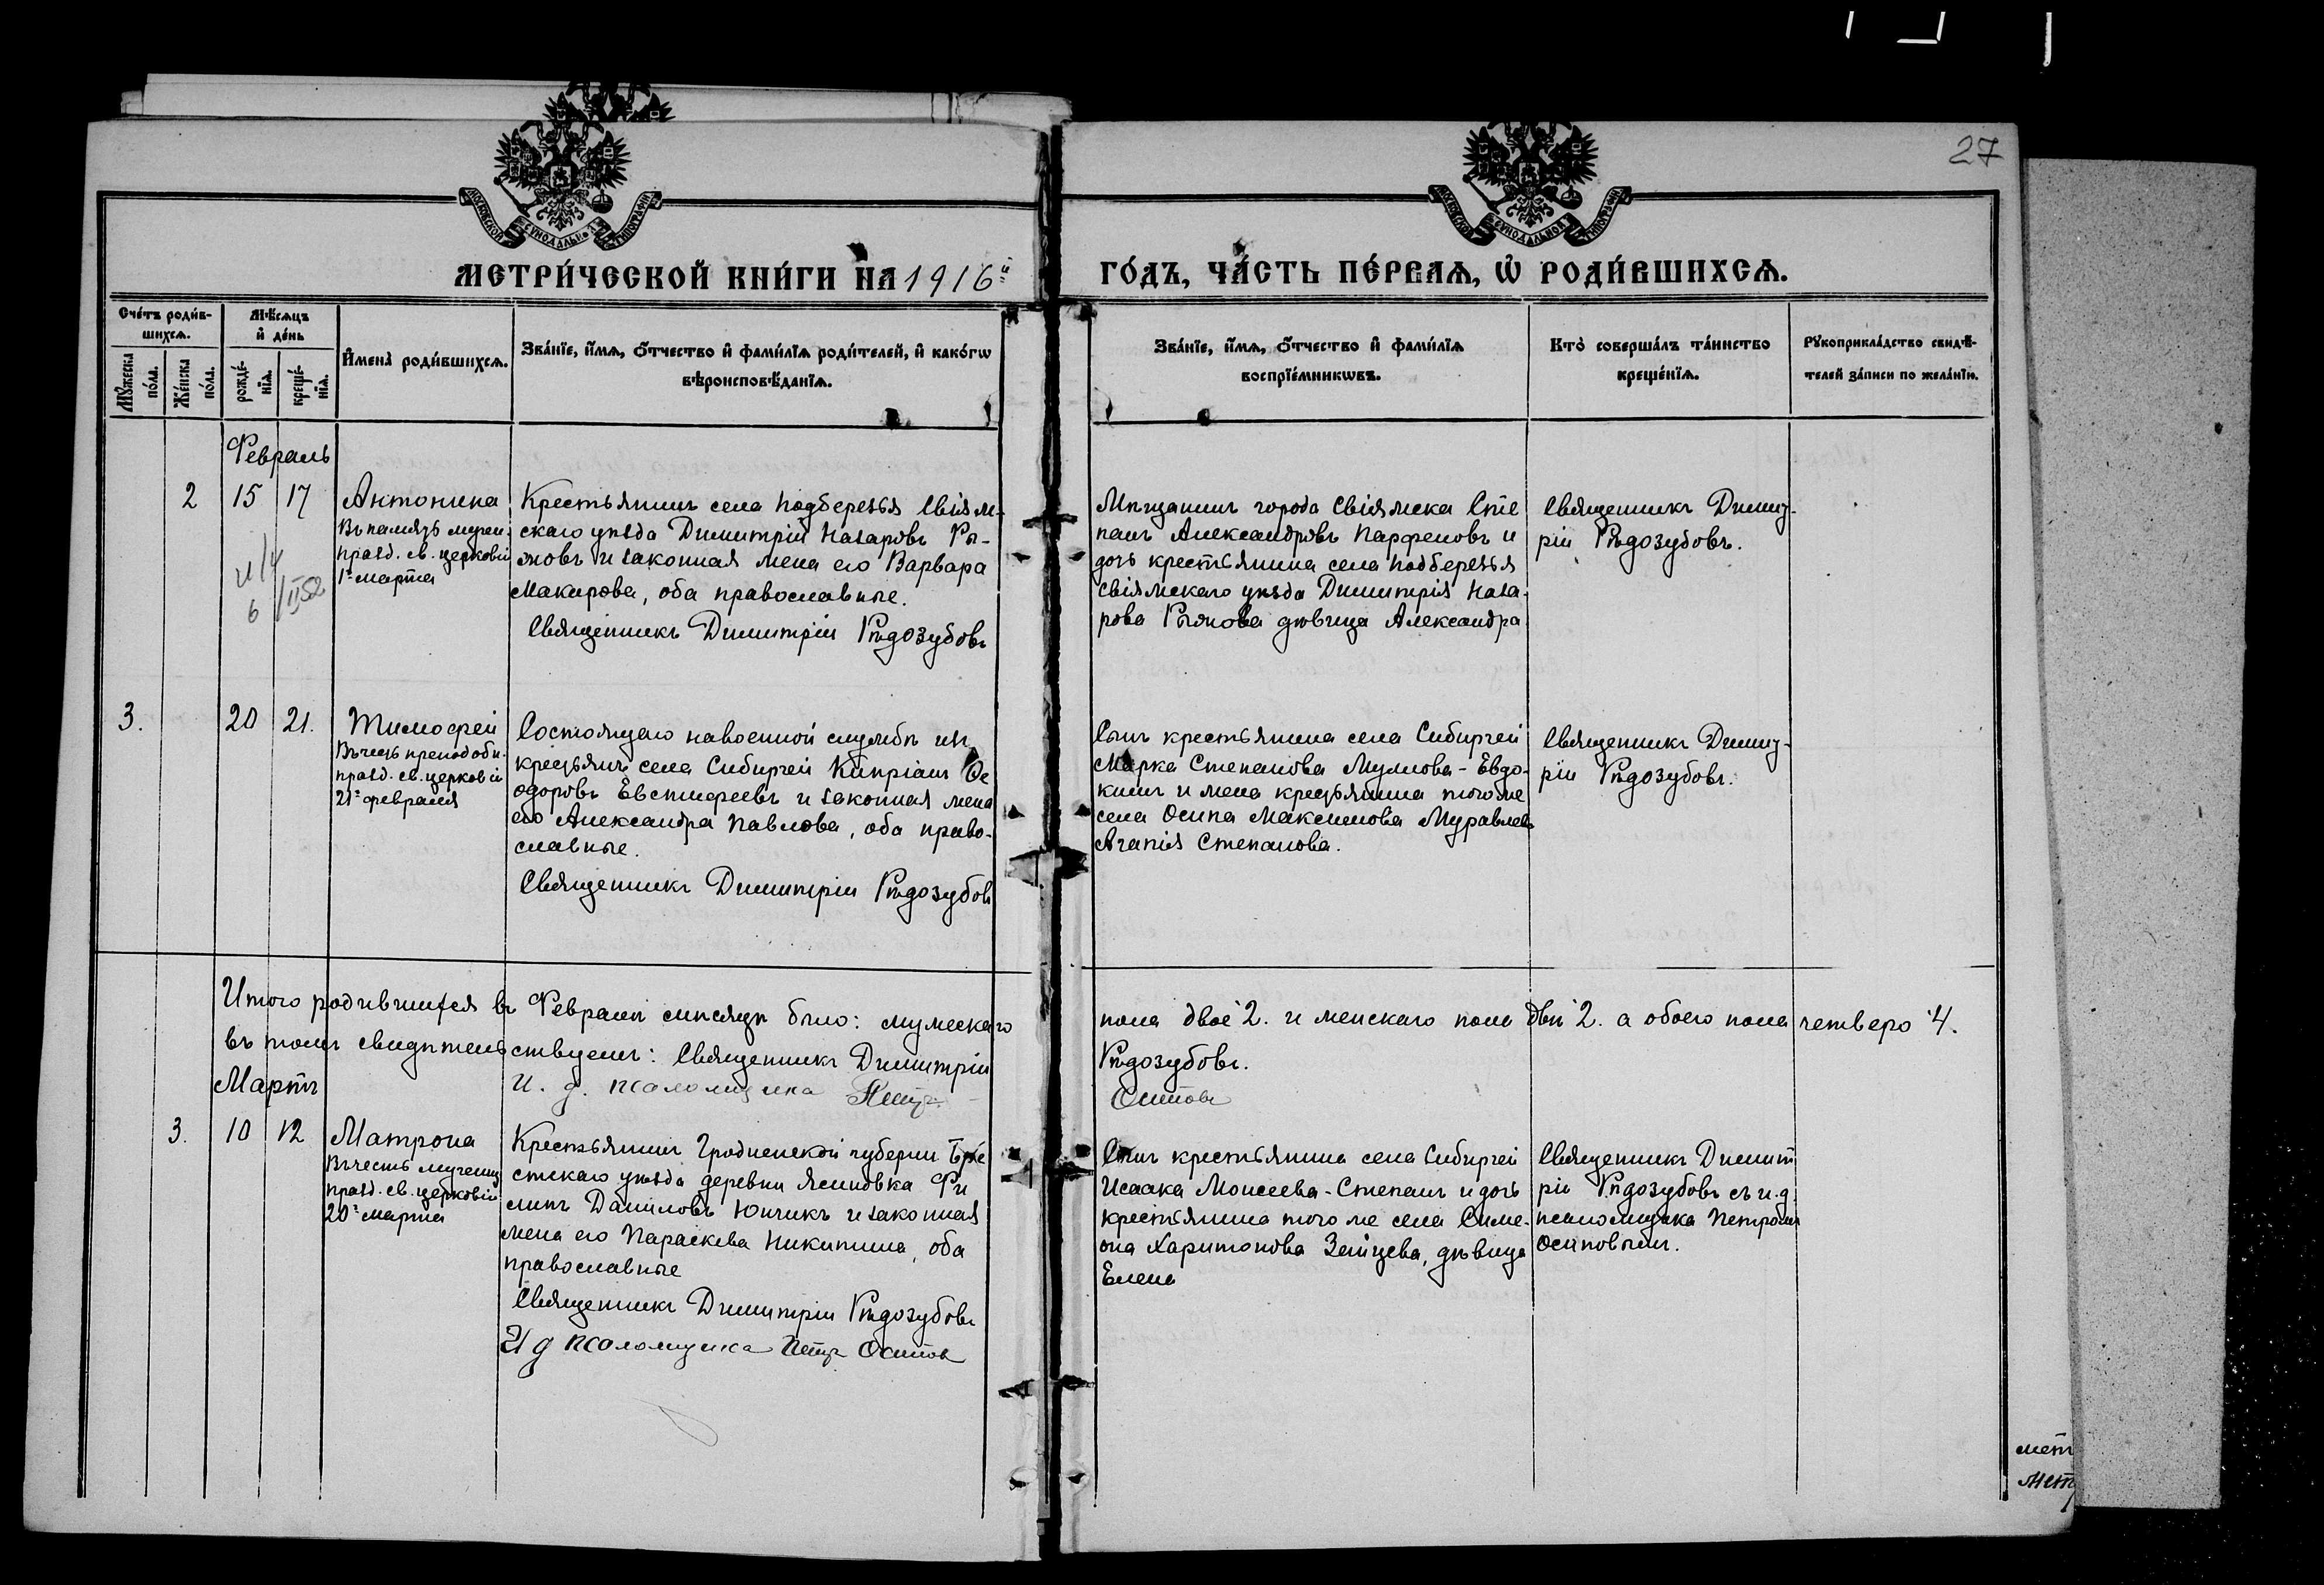 27
МОСКОВСКОЙ СѴНОДАЛЬНОЙ ТИПОГРАФІИ
МОСКОВСКОЙ СѴНОДАЛЬНОЙ ТИПОГРАФІИ
МЕТРИ́ЧЕСКОЙ КНИ́ГИ НА 1916й
ГО́ДЪ, ЧА́СТЬ ПЕ́РВАѦ, Ѡ РОДИ́ВШИХСѦ.
Сче́тъ роди́в-
шихсѧ.
Мꙋ́жеска по́ла.
Же́нска по́ла.
Мѣ́сѧцъ
и҆ де́нь
рожде́-
нїѧ.
креще́-
нїѧ.
И҆мена̀ роди́вшихсѧ.
Зва́нїе, и҆́мѧ, ѻ҆́тчество и҆ фами́лїѧ роди́телей, и҆ како́гѡ
вѣроисповѣ́данїѧ.
Зва́нїе, и҆́мѧ, ѻ҆́тчество и҆ фами́лїѧ
воспрїе́мникѡвъ.
Кто̀ соверша́лъ та́инство
креще́нїѧ.
Рꙋкоприкла́дство свидѣ́-
телей за́писи по жела́нїю.
Февраль
2 15 17 Антонина
Въ память мучен.
празд. св. церковію
1го марта
Крестьянинъ села Подберезья Свіяж-
скаго уѣзда Димитрій Назаровъ Ры-
жовъ и законная жена его Варвара
Макарова, оба православные.
Священникъ Димитрій Рѣдозубовъ
Мѣщанинъ города Свіяжска Сте
панъ Александровъ Парфеновъ и
дочь крестьянина села Подберезья
Свіяжскаго уѣзда Димитрія Наза-
рова Рыжова дѣвица Александра
Священникъ Димит-
рій Рѣдозубовъ.
3. 20 21. Тимофей
Въ честь преподобн.
празд. св. церковію
21го февраля
Состоящаго на военной службѣ изъ
крестьянъ села Сибирчей Кипріанъ Ѳе
одоровъ Евстифеевъ и законная жена
его Александра Павлова, оба право-
славные.
Священникъ Димитрій Рѣдозубовъ
Сынъ крестьянина села Сибирчей
Марка Степанова Мулюва - Евдо-
кимъ и жена крестьянина того же
села Осипа Максимова Муравлева
Агапія Степанова.
Священникъ Димит-
рій Рѣдозубовъ.
Итого родившихся въ Февралѣ мѣсяцѣ было: мужескаго
пола двое 2. и женскаго пола двѣ 2. а обоего пола четверо 4.
въ томъ свидѣтельствуемъ: Священникъ Димитрій
Рѣдозубовъ.
И. д. псаломщика Петръ
Осиповъ
Мартъ
3. 10 12 Матрона
Въ честь мучениц
празд. св. церковію
20го марта
Крестьянинъ Гродненской губерніи Бре
стскаго уѣзда деревни Ясиновка Фи
липъ Даниловъ Юнчикъ и законная
жена его Параскева Никитина, оба
православные
Священникъ Димитрій Рѣдозубовъ
И д псаломщика Петръ Осиповъ
Сынъ крестьянина села Сибирчей
Исаака Моисеева - Степанъ и дочь
крестьянина того же села Симе-
она Харитонова Зайцева, дѣвица
Елена
Священникъ Димит
рій Рѣдозубовъ съ и.д.
псаломщика Петромъ
Осиповымъ.